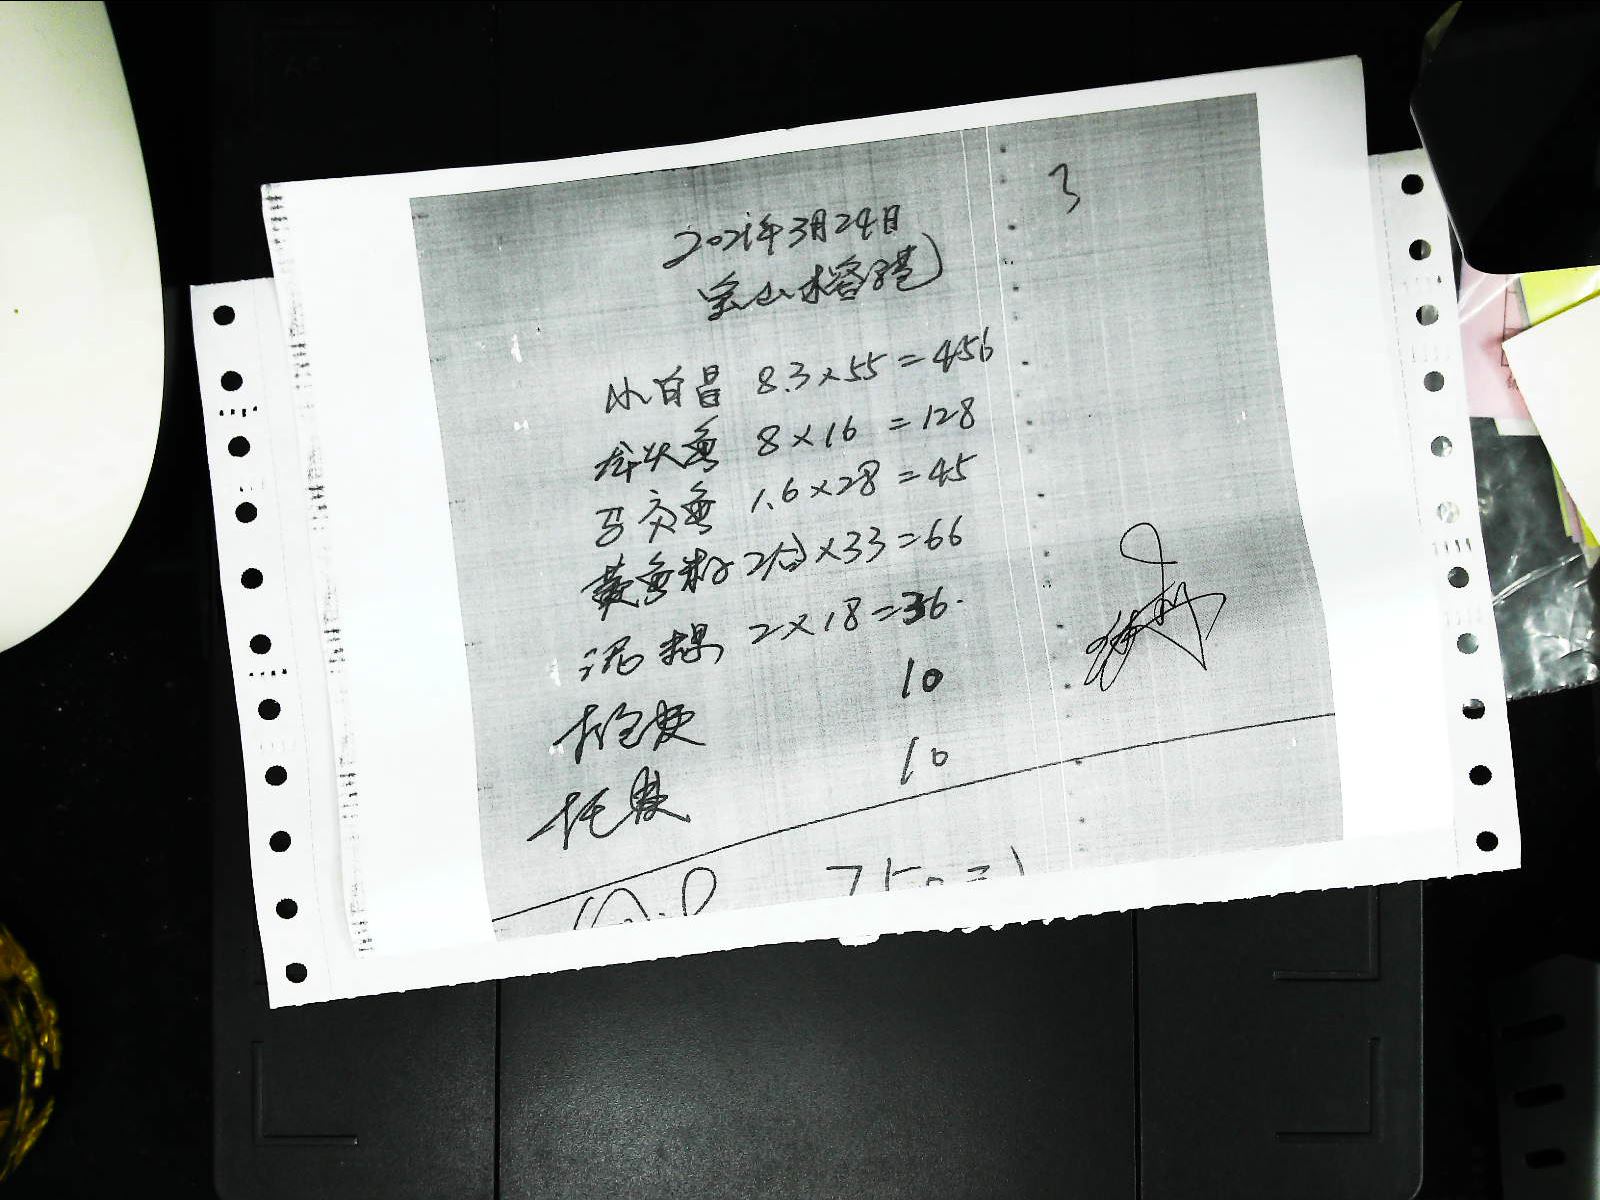 3
2021年3月24日
宝山榕港
小白昌 8.3×55=456
龙头鱼 8×16=128
马交鱼 1.6×28=45
黄鱼籽 2包×33=66
泥螺 2×18=36.
打包费 10
托费 10